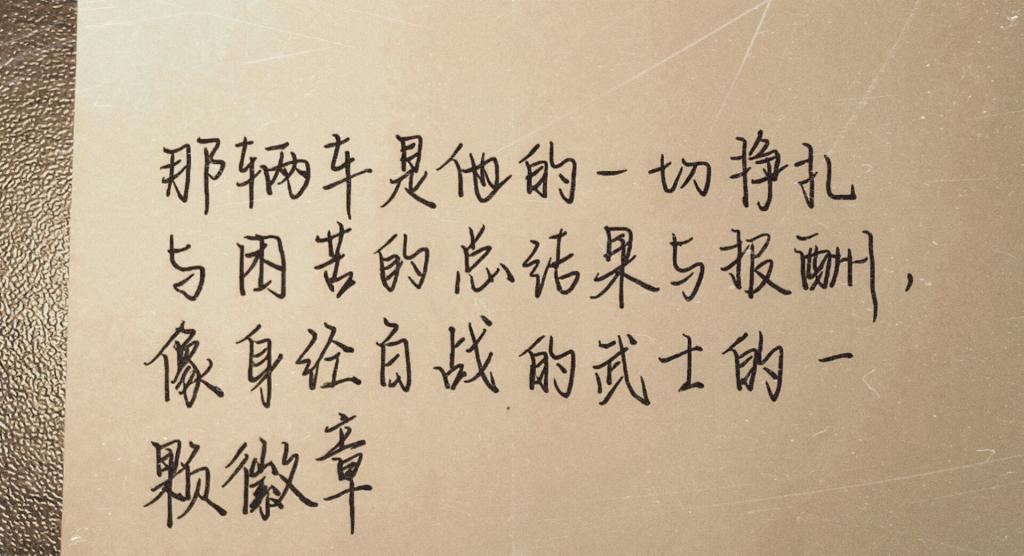 那辆车是他的一切挣扎
与困苦的总结果与报酬，
像身经百战的武士的一
颗徽章